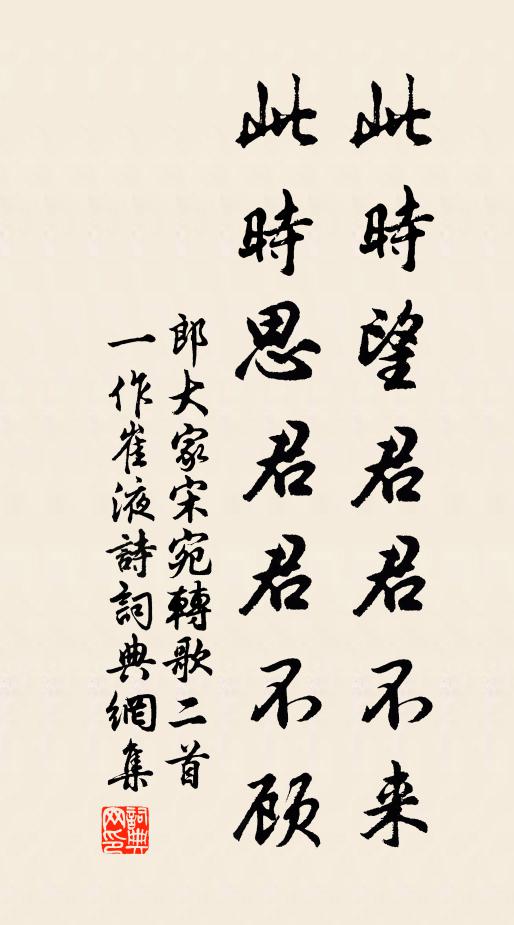 此時望君君不来
此時思君君不顾
郎大家宋宛轉歌二首
一作崔液詩詞典網集
詞典
网印